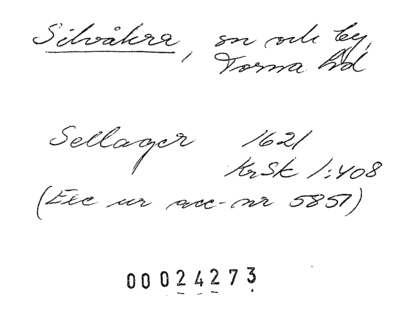 Silvåkra, sn och by,
Torna hd
Sellager 1621
KrSk 1:408
(Exc ur acc-nr 5851)
00024273